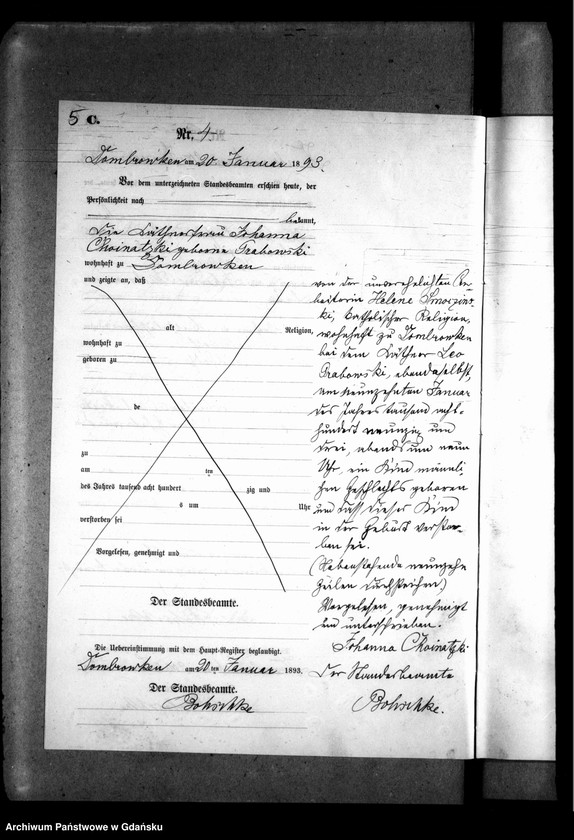 5 C.
Nr. 4
Dombrowken am 20 Januar 1893.
Vor dem unterzeichneten Standesbeamten erschien heute, der
Persönlichkeit nach
bekannt,
die Käthnerfrau Johanna
Choinatzki geborne Grabowski
wohnhaft zu Dombrowken
und zeigte an, daß
alt Religion,
wohnhaft zu
geboren zu
de
zu
am ten
des Jahres tausend acht hundert zig und
s um Uhr
verstorben sei
Vorgelesen, genehmigt und
Der Standesbeamte.
von der unverehelichten Ar-
beiterin Helene
ki, katholischer Religion,
wohnhaft zu Dombrowken
bei dem Käthner Leo
Grabowski, ebendaselbst,
am neunzehnten Januar
des Jahres tausend acht-
hundert neunzig und
drei, abends um neun
Uhr, ein Kind männli
chen Geschlechts geboren
und daß dieses Kind
in der Geburt verstor-
ben sei.
(Nebenstehende neunzehn
Zeilen durchstrichen.)
Vorgelesen, genehmigt
und unterschrieben.
Johanna Choinatzki
Der Standesbeamte
Bohschke.
Die Uebereinstimmung mit dem Haupt-Register beglaubigt.
Dombrowken am 20 ten Januar 1893.
Der Standesbeamte.
Bohschke
Archiwum Państwowe w Gdańsku